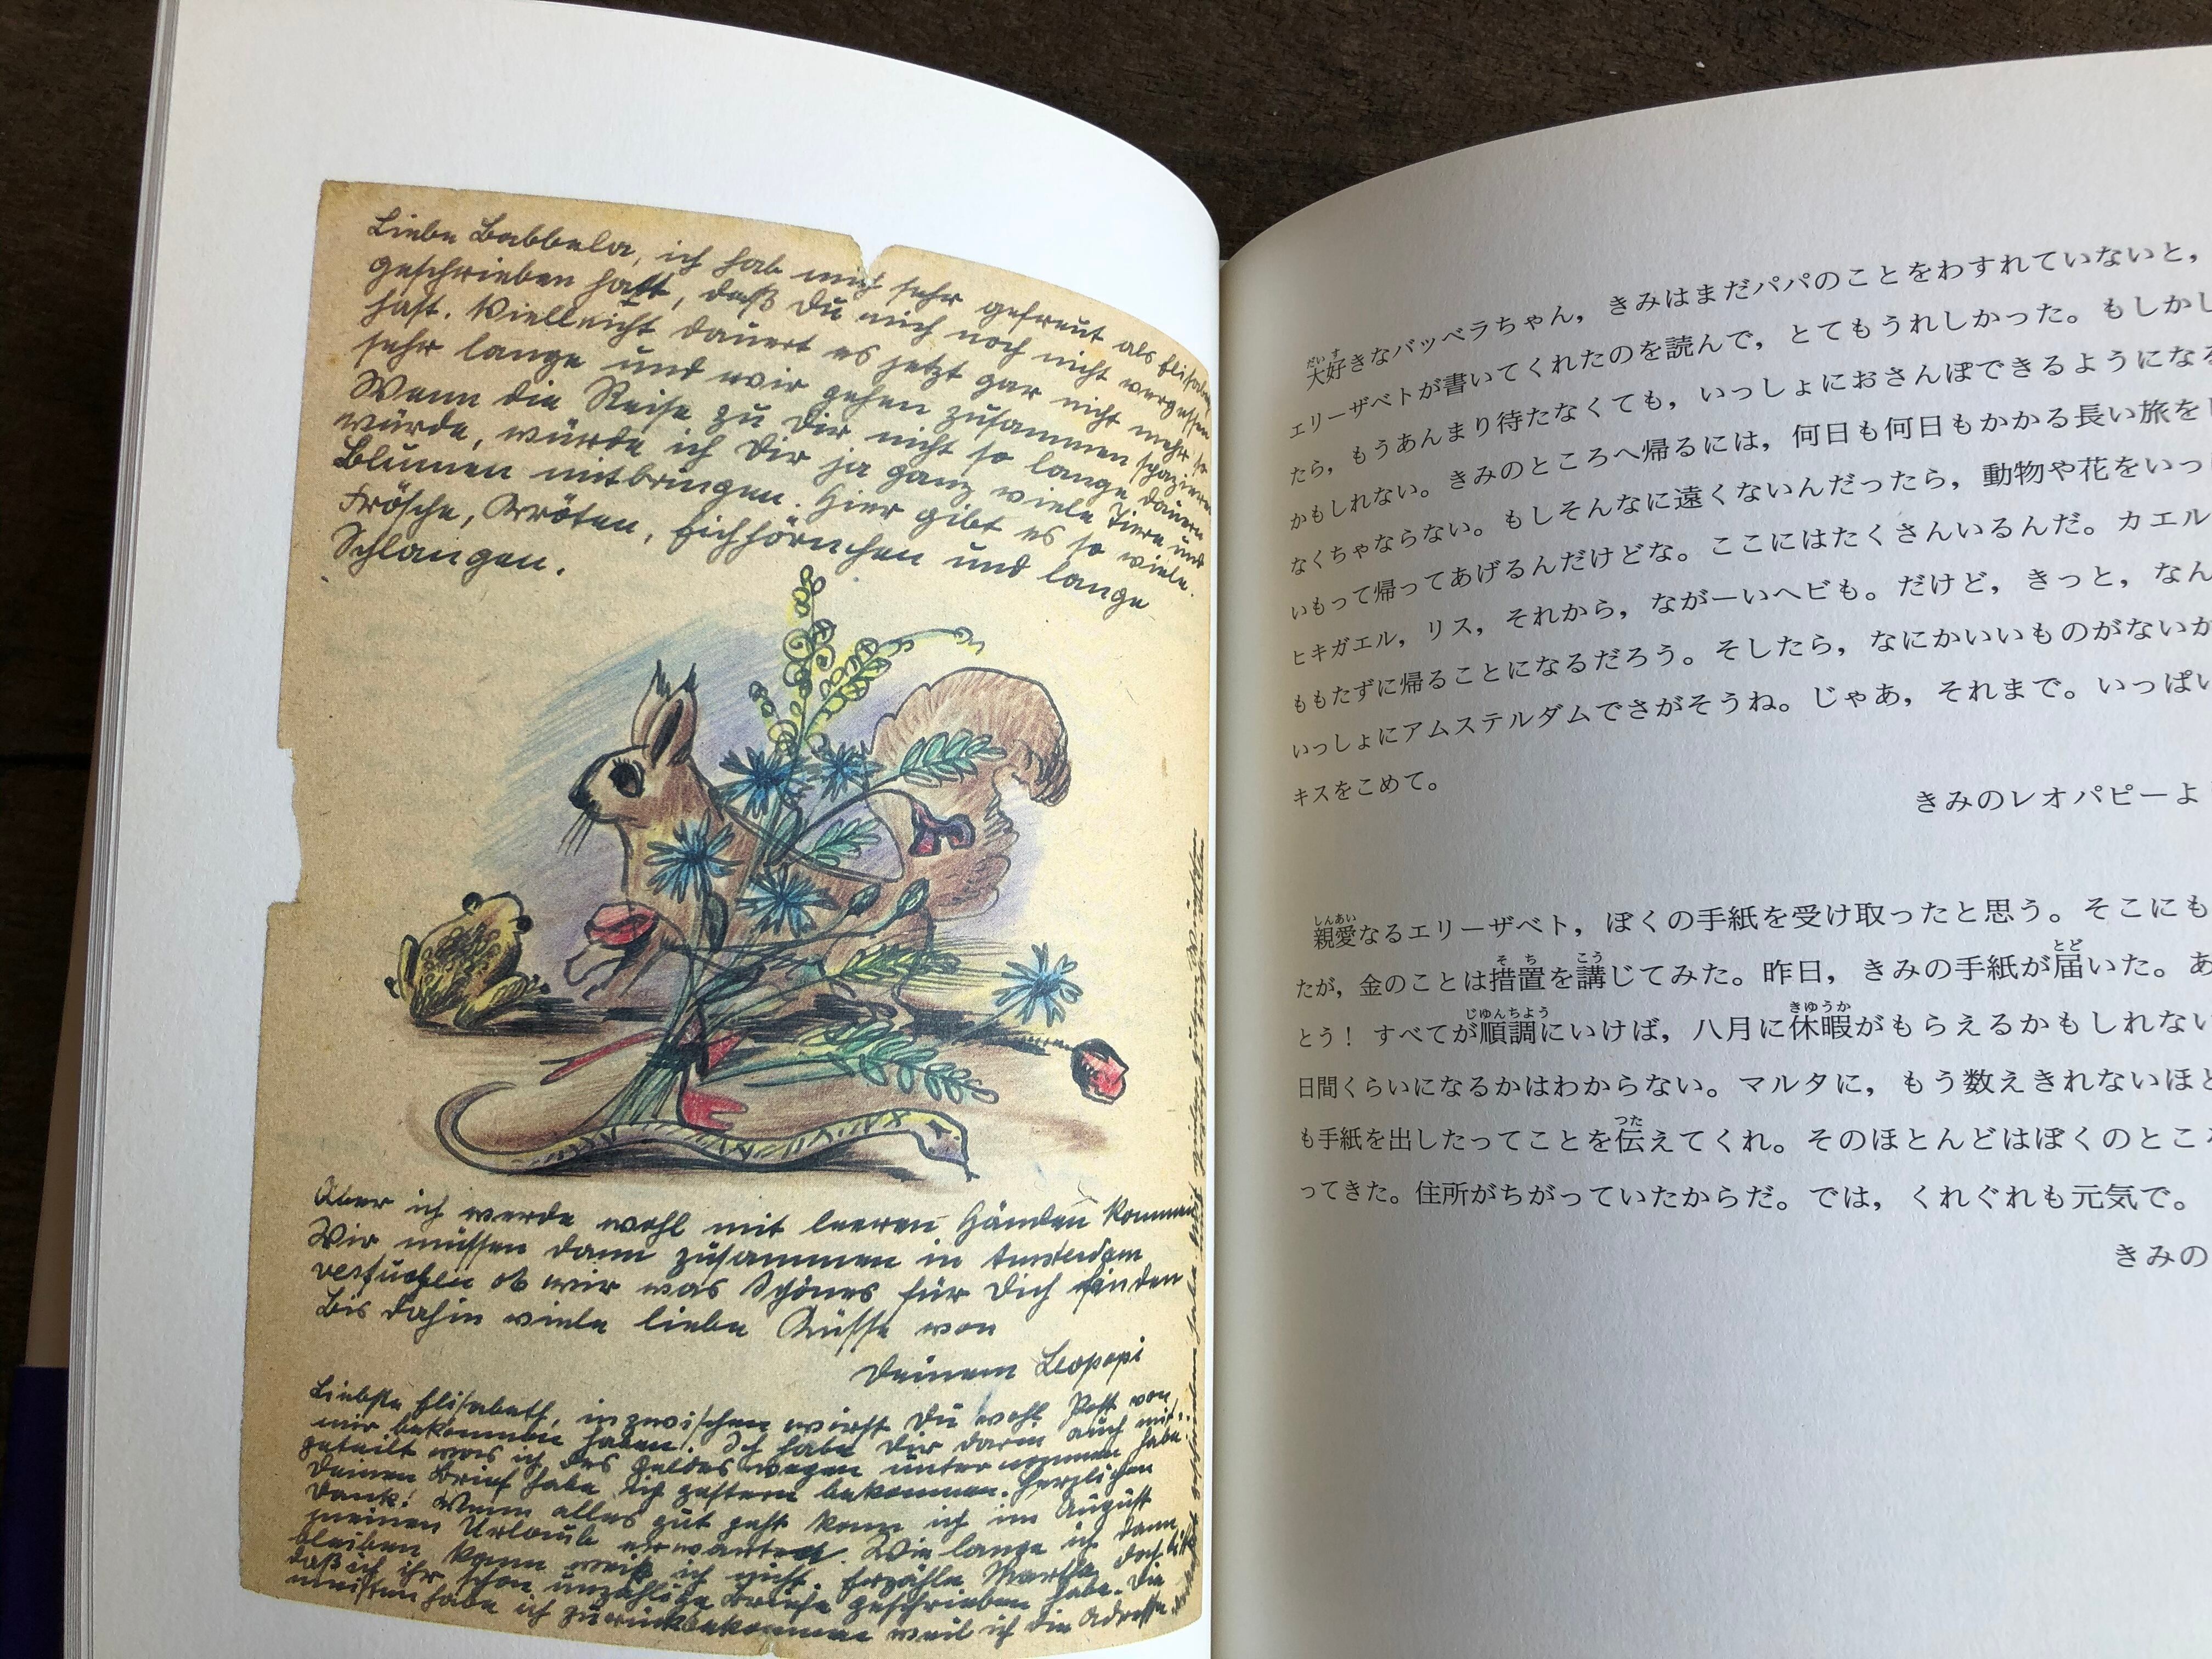 Liebe Babbela, ich hab mich sehr gefreut als Elisabeth
geschrieben hatt, daß Du mich noch nicht vergessen
hast. Vielleicht dauert es jetzt gar nicht mehr so
sehr lange und wir gehen zusammen spazieren
Wenn die Reise zu Dir nicht so lange dauern
würde, würde ich Dir ja ganz viele Tiere und
Blumen mitbringen. Hier gibt es so viele.
Frösche, Kröten, Eichhörnchen und lange
Schlangen.
Aber ich werde wohl mit leeren Händen kommen
Wir müssen dann zusammen in Amsterdam
versuchen ob wir was Schönes für Dich finden
Bis dahin viele liebe Küsse von
Deinem Leopapi
Liebste Elisabeth, inzwischen wirst Du wohl Post von
mir bekommen haben. Ich habe Dir darin auch mit-
geteilt was ich des Geldes wegen unternommen habe.
Deinen Brief habe ich gestern bekommen. Herzlichen
Dank! Wenn alles gut geht kann ich im August
meinen Urlaub erwarten. Wie lange ich dann
bleiben kann weiß ich nicht. Erzähle Martha doch bitte
daß ich ihr schon unzählige Briefe geschrieben habe. Die
meisten habe ich zurückbekommen weil ich die Adresse
大好きなバッベラちゃん，きみはまだパパのことをわすれていないと，
エリーザベトが書いてくれたのを読んで，とてもうれしかった。もしかし
たら，もうあんまり待たなくても，いっしょにおさんぽできるようになる
かもしれない。きみのところへ帰るには，何日も何日もかかる長い旅をし
なくちゃならない。もしそんなに遠くないんだったら，動物や花をいっ
いもって帰ってあげるんだけどな。ここにはたくさんいるんだ。カエル
ヒキガエル，リス，それから，ながーいヘビも。だけど，きっと，なん
ももたずに帰ることになるだろう。そしたら，なにかいいものがないか
いっしょにアムステルダムでさがそうね。じゃあ，それまで。いっぱい
キスをこめて。
きみのレオパピーよ
親愛なるエリーザベト，ぼくの手紙を受け取ったと思う。そこにも
たが，金のことは措置を講じてみた。昨日，きみの手紙が届いた。あ
とう！ すべてが順調にいけば，八月に休暇がもらえるかもしれない
日間くらいになるかはわからない。マルタに，もう数えきれないほど
も手紙を出したってことを伝えてくれ。そのほとんどはぼくのところ
ってきた。住所がちがっていたからだ。では，くれぐれも元気で。
きみの